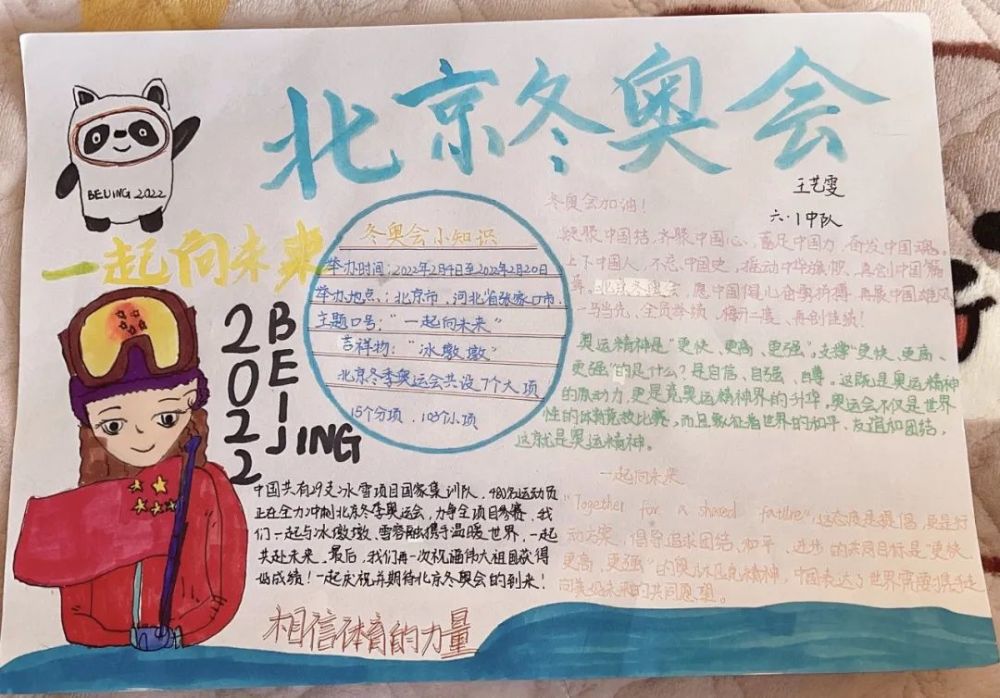 北京冬奥会
王艺雯
六.1中队
BEIJING 2022
一起向未来
2022
BEIJING
冬奥会小知识
举办时间：2022年2月4日至2022年2月20日
举办地点：北京市、河北省张家口市.
主题口号："一起向未来"
吉祥物："冰墩墩"
北京冬季奥运会共设7个大项
15个分项，109个小项
冬奥会加油！
中国结，齐聚中国心，富足中国力，奋发中国魂。
上下中国人，不忘中国史，摇动中华旗帜，再创中国辉
北京冬奥会，愿中国健儿奋勇拼搏，再展中国雄风
一马当先、全员举绩，梅开二度、再创佳绩！
奥运精神是"更快、更高、更强"，支撑"更快、更高、
更强"的是什么？是自信、自强、自尊。这既是奥运精神
的原动力，更是竞奥运精神界的升华，奥运会不仅是世界
性的体育竞技比赛，而且象征着世界的和平、友谊和团结，
这就是奥运精神。
一起向未来
"Together for a shared future"，这态度是提倡，更是行
动方案，倡导追求团结、和平、进步的共同目标是"更快
更高、更强"的奥林匹克精神，中国表达了世界需要携手走
向美好未来的共同愿望。
中国共有29支冰雪项目国家集训队，480名运动员
正在全力冲刺北京冬季奥运会，力争全项目参赛，我
们一起与冰墩墩、雪容融携手温暖世界，一起
共赴未来。最后，我们再一次祝福伟大祖国获得
好成绩！一起庆祝并期待北京冬奥会的到来！
相信体育的力量